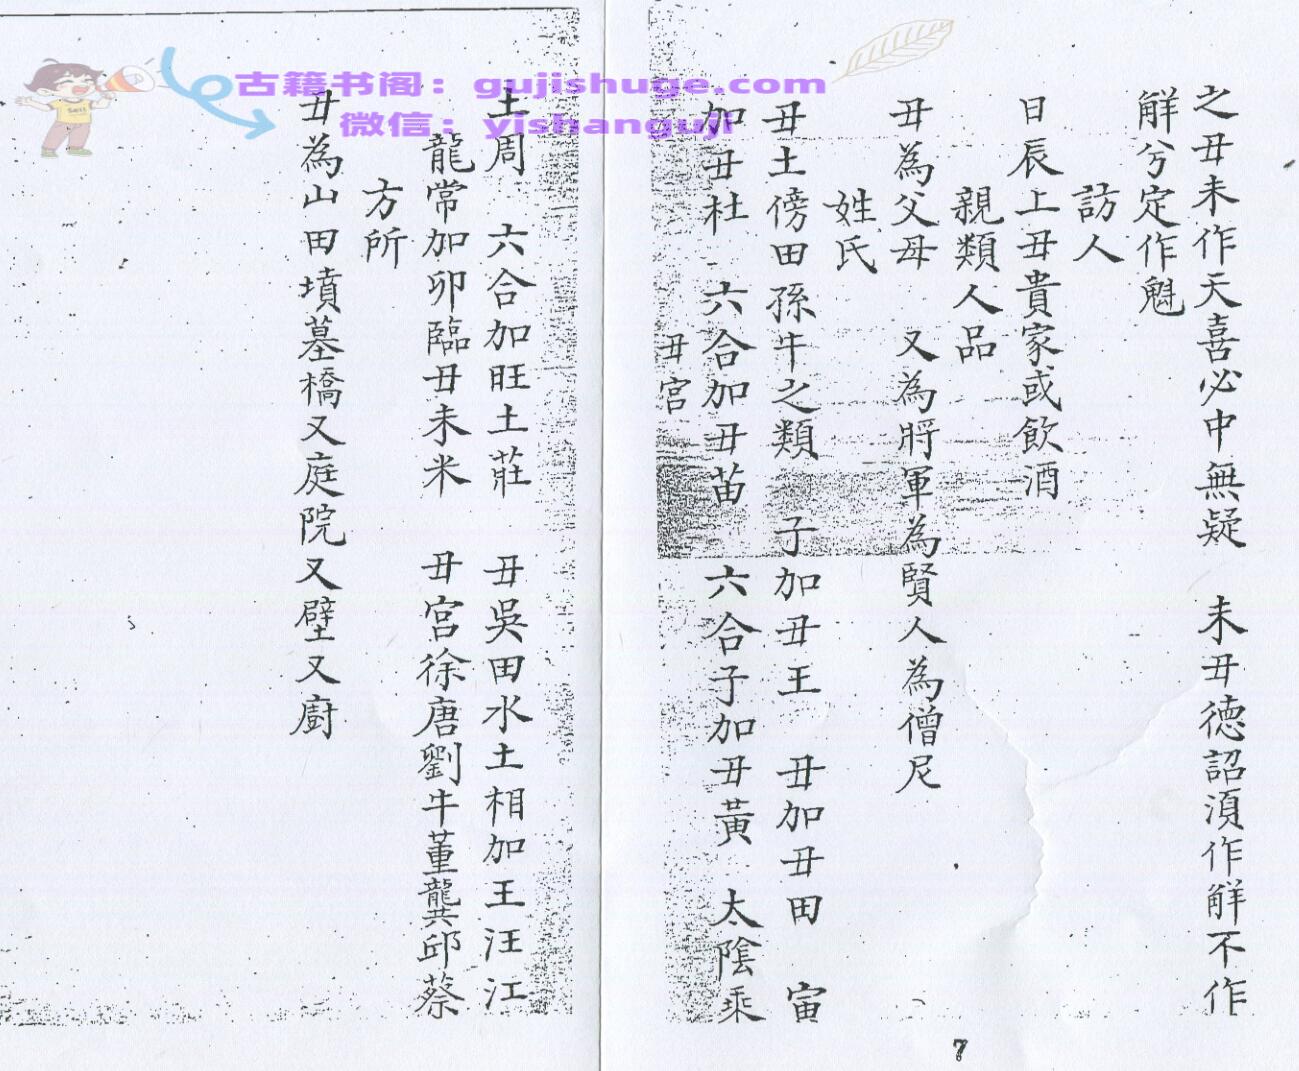 古籍书阁：gujishuge.com
微信：yishanguji
之丑未作天喜必中無疑　未丑德詔須作解不作
解兮定作魁
訪人
日辰上丑貴家或飲酒
親類人品
丑為父母　又為將軍為賢人為僧尼
姓氏
丑土傍田孫牛之類　子加丑王　丑加丑田　寅
加丑杜　六合加丑苗　六合子加丑黃　太陰乘
丑宮
7
土周　六合加旺土莊　丑吳田水土相加王汪江
龍常加卯臨丑未米　丑宮徐唐劉牛董龔邱蔡
方所
丑為山田墳墓橋又庭院又壁又廚